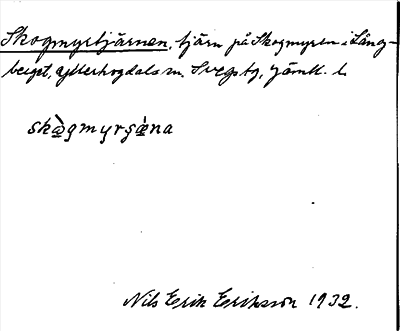 Skogmyrtjärnen, tjärn på Skogmyren i Lång-
berget, Ytterhogdals sn, Svegs tg, Jämtl. l.
skò̱gmyrʂæ̀na
Nils Erik Eriksson 1932.